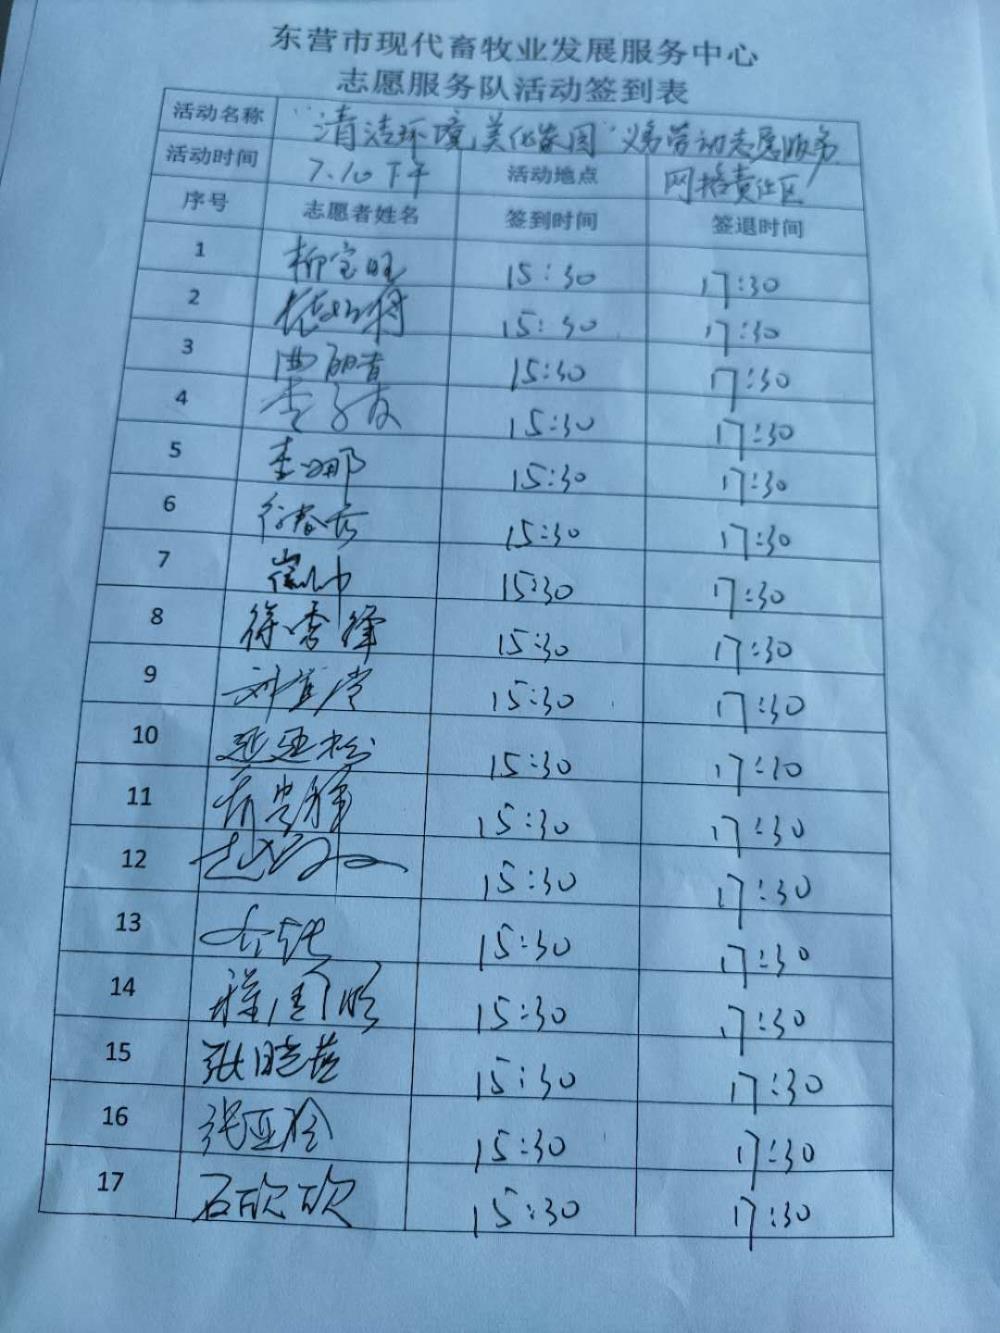 东营市现代畜牧业发展服务中心
志愿服务队活动签到表
活动名称 "清洁环境,美化家园"义务劳动志愿服务
活动时间 7.10下午 活动地点 网格责任区
序号 志愿者姓名 签到时间 签退时间
1 柳宝旺 15:30 17:30
2 15:30 17:30
3 曲丽青 15:30 17:30
4 李子友 15:30 17:30
5 李娜 15:30 17:30
6 徐春 15:30 17:30
7 崔帅 15:30 17:30
8 徐秀锋 15:30 17:30
9 刘宜 15:30 17:30
10 延亚松 15:30 17:10
11 15:30 17:30
12 15:30 17:30
13 15:30 17:30
14 15:30 17:30
15 张晓燕 15:30 17:30
16 张亚玲 15:30 17:30
17 石欣欣 15:30 17:30